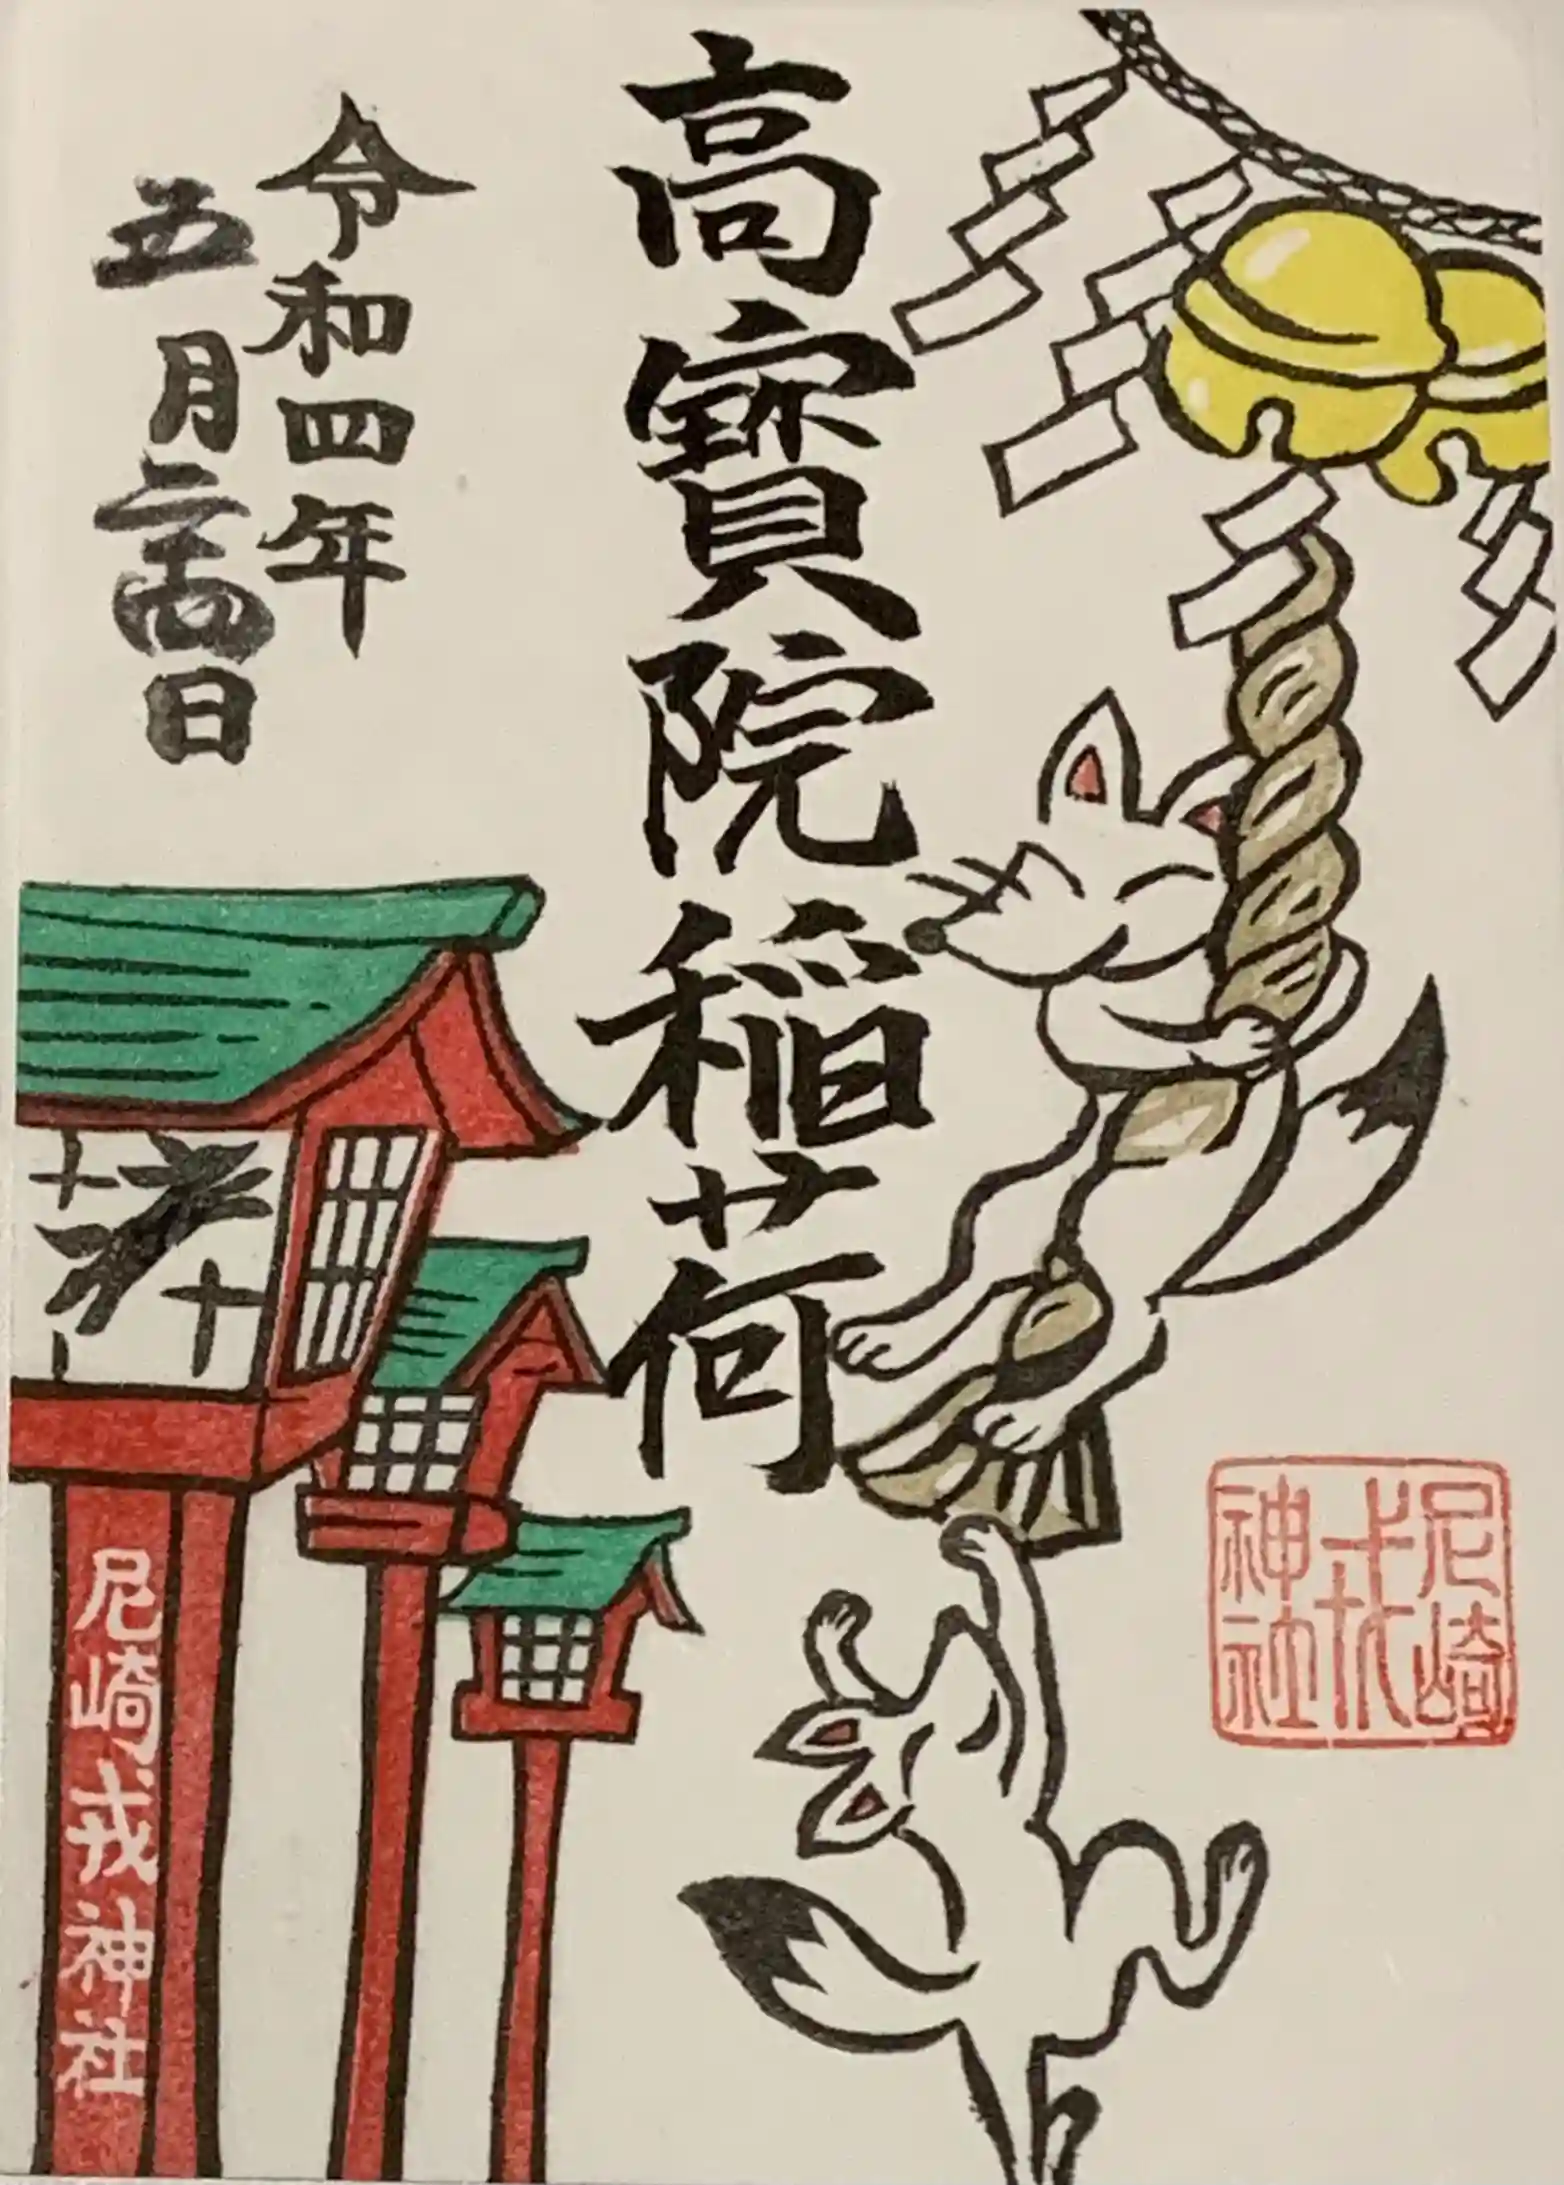 高寶院稲荷
令和四年
五月二十四日
奉
尼崎戎神社
尼崎
戎
神社